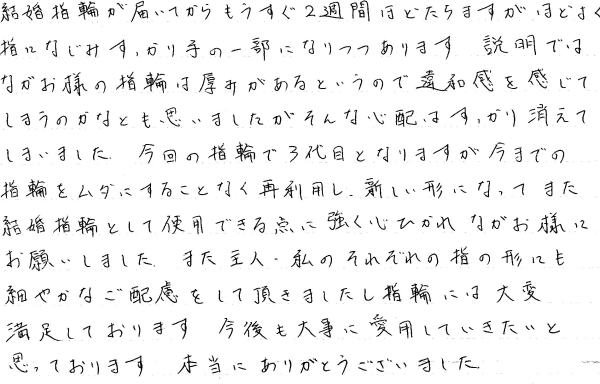 結婚指輪が届いてからもうすぐ2週間ほどたちますがほどよく
指になじみすっかり手の一部になりつつあります 説明では
ながお様の指輪は厚みがあるというので違和感を感じて
しまうのかなとも思いましたがそんな心配はすっかり消えて
しまいました 今回の指輪で3代目となりますが今までの
指輪をムダにすることなく再利用し、新しい形になって また
結婚指輪として使用できる点に強く心ひかれ ながお様に
お願いしました また主人・私のそれぞれの指の形にも
細やかなご配慮をして頂きましたし指輪には大変
満足しております 今後も大事に愛用していきたいと
思っております 本当にありがとうございました